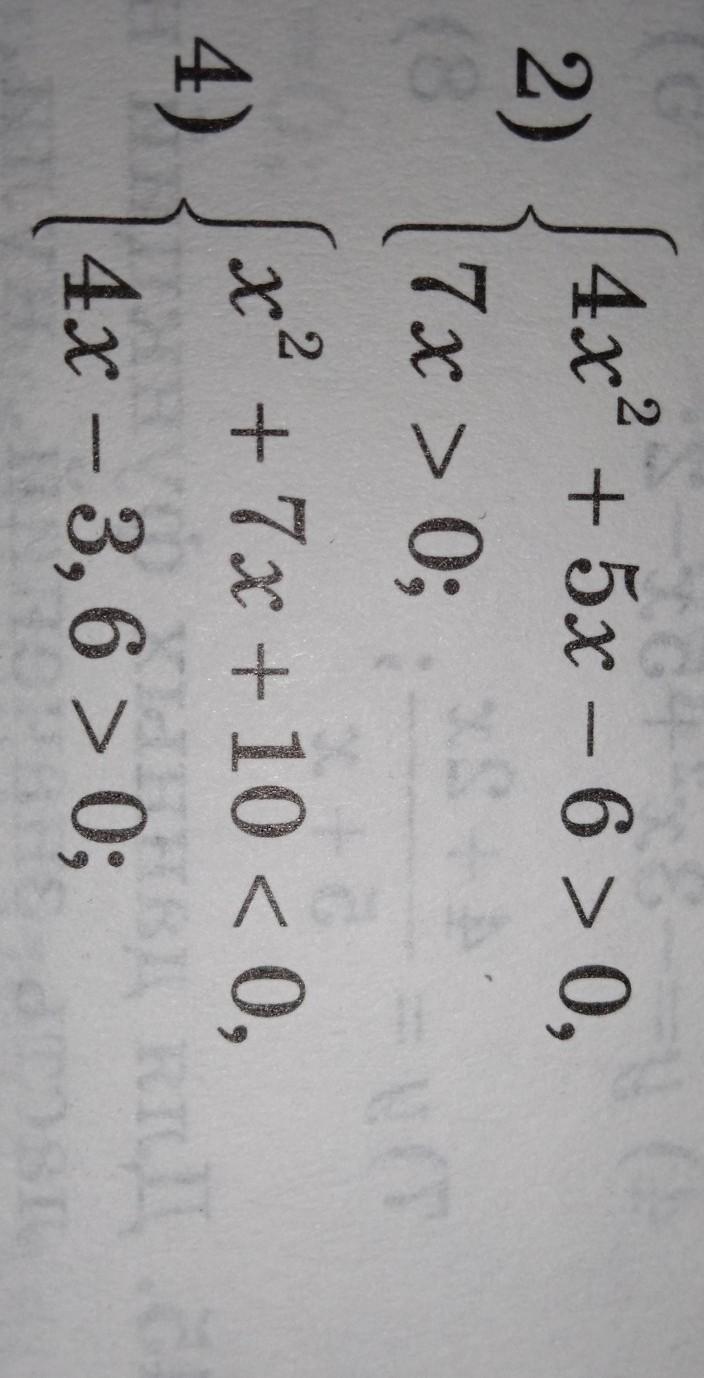 2) { 4x² + 5x − 6 > 0,
7x > 0;
4) { x² + 7x + 10 < 0,
4x − 3,6 > 0;